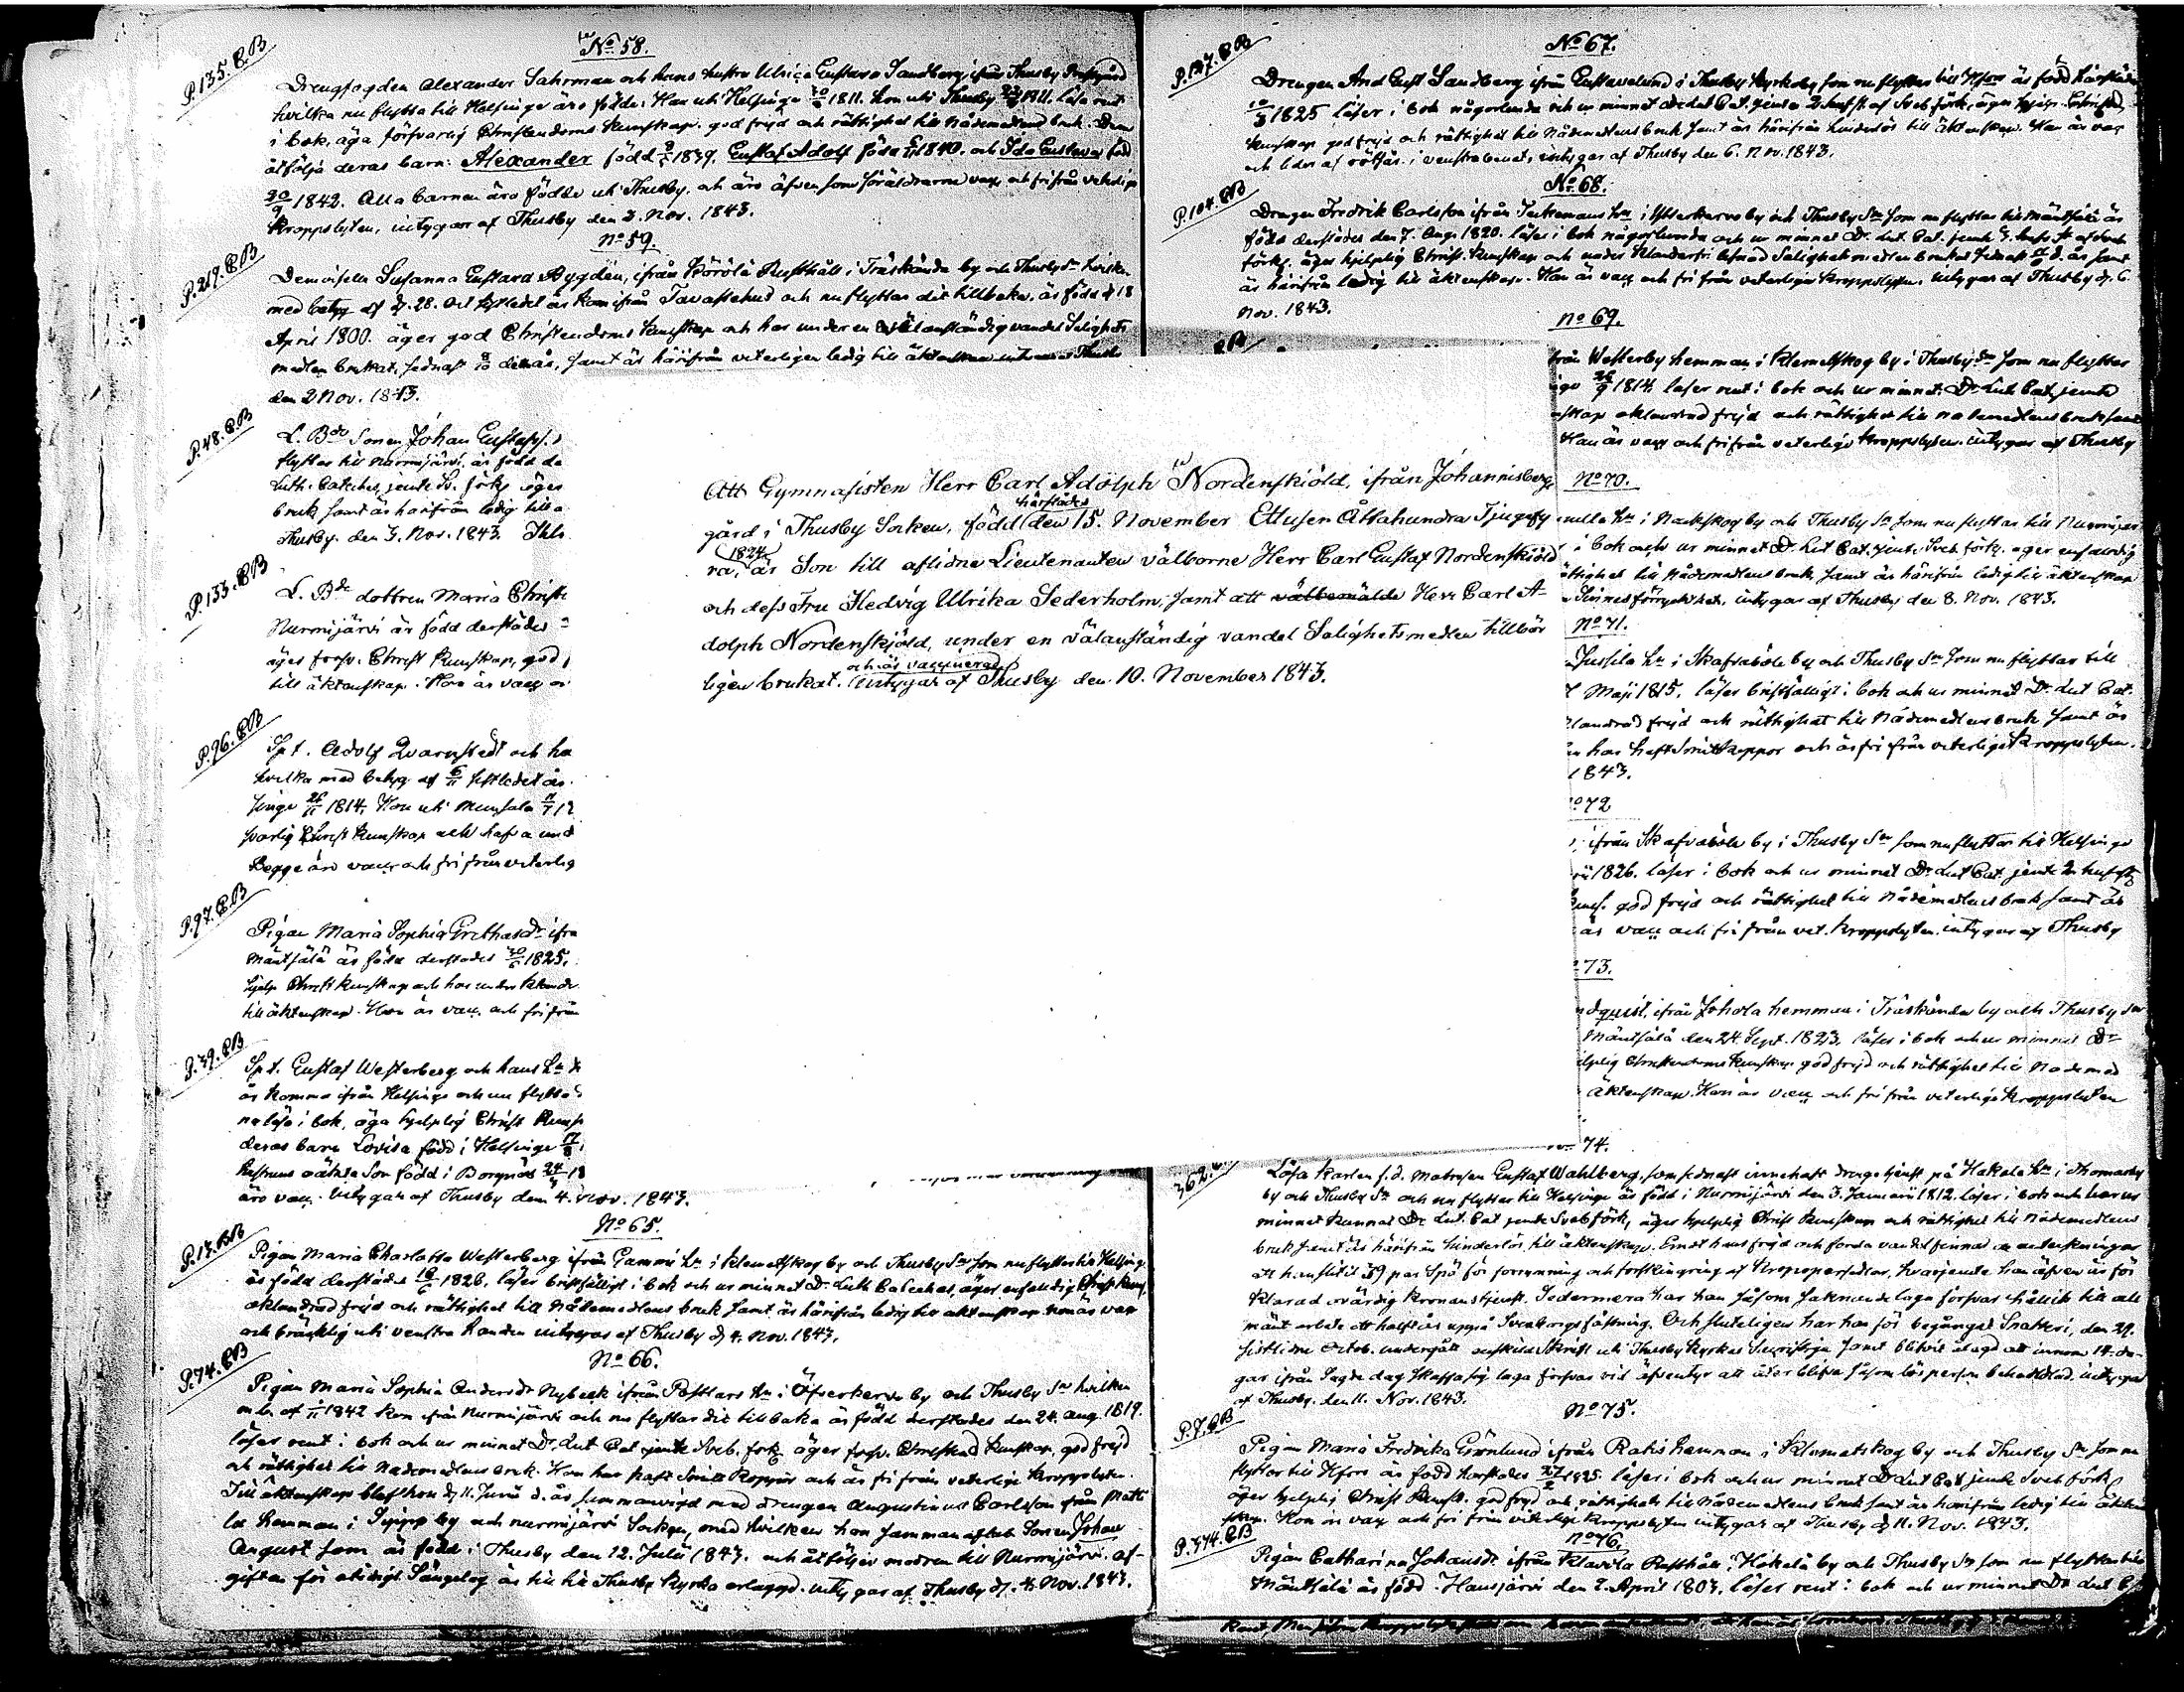 P. 135. C.B
No 58.
Drengfogden Alexander Sahrman och hans hustru Ulrica Gustava Sandberg, ifrån Thusby
hvilka nu flytta till Helsinge äro födde: Han uti Helsinge 1811. hon uti Thusby 1811. läsa rent
i bok, äga försvarlig Christendoms kunskap. god frejd och rättighet till Nådemedlens bruk. Dem
åtfölja deras barn: Alexander född 1839. Gustaf Adolf född 1840. och Ida Gustava född
30/9 1842. Alla barnen äro födde uti Thusby, och äro äfven som föräldrarne vacc. och fri från veterliga
kroppslyten, intygar af Thusby den 2. Nov. 1843.
P. 219. C.B
No 59.
Demoiselle Susanna Gustava Nygdén, ifrån Skörölä Rusthåll i Träskända by och Thusby Sn hvilken
med betyg af d. 28. Oct. sistledet år kom ifrån Tavastehus och nu flyttar dit tillbaka, är född d 18
April 1800. äger god Christendoms kunskap och har under en välanständig vandel Salighets
medlen brukat, sednast detta år, samt är härifrån veterligen ledig till
den 2 Nov. 1843.
P. 48. C.B
L. Bde Sonen Johan Gustafs
flyttar till Nurmijärvi, är född de
Luth. Cateches, jemte Sv. förk. äger
bruk samt är härifrån ledig till
Thusby. den 3. Nov. 1843.
P. 133. C.B
L. Bde dottren Maria Christi
Nurmijärvi är född derstädes
äger försv. Christ kunskap, god
till äktenskap. Hon är vacc o
P. 96. C.B
Spt. Adolf Qvarnstedt och ha
hvilka med betyg af 6/11 sistledet år
singe 26/11 1814. Hon uti Munsala
svarlig Christ kunskap och hafva und
Begge äro vacc. och fri från veterlig
P. 97. C.B
Pigan Maria Sophia Grethasdr ifrå
Mäntsälä är född derstädes 1825.
hjelp. Christ kunskap och har under klander
till äktenskap. Hon är vacc. och fri från
P. 39. C.B
Spt. Gustaf Westerberg och hans
år komma ifrån Helsinge och nu flytta
na läsa i bok, äga hjelplig Christ kunsk
deras barn Lovisa född i Helsinge
hustruns oäkta Son född i Borgnäs
äro vacc. Intygar af Thusby den 4. Nov. 1843.
P. 17. C.B
No 65.
Pigan Maria Charlotta Westerberg ifrån Gammi Hn i Klemetskog by och Thusby Sn som nu flyttar till Helsinge
är född derstädes 1826, läser bristfälligt i bok och ur minnet Dr Luth Cateches, äger enfaldig Christ kunsk,
oklandrad frejd och rättighet till Nådemedlens bruk samt är härifrån ledig till äktenskap. Hon är vacc
och bräcklig uti venstra handen intygas af Thusby d 4. Nov. 1843.
P. 74. C.B
No 66.
Pigan Maria Sophia Andersdr Nybeck ifrån Påttlars Hn i Öfverkervo by och Thusby Sn hvilken
m. b. af 1842 kom ifrån Nurmijärvi och nu flyttar dit tillbaka är född derstädes den 24. Aug. 1819.
läser rent i bok och ur minnet Dr. Lut Cat jemte Sveb. förk. äger försv. Christend kunskap, god frejd
och rättighet till Nådemedlens bruk. Hon har haft Smittkoppor och är fri från veterliga kroppslyten.
Till äktenskap blef hon d 11. Junii d. år sammanvigd med drengen Augustinus Carlsson från Matt
la hemman i by och Nurmijärvi Socken, med hvilken hon samman aflat Sonen Johan
August som är född i Thusby den 12. Julii 1843. och åtföljer modren till Nurmijärvi. af-
giften för otidigt Sängelag är till Thusby kyrka erlagd. intygar af Thusby d. 4. Nov. 1843.
P. 127. C.B
No 67.
Drengen And Gust Sandberg ifrån Gustavelund i Thusby Kyrkoby som nu flyttar till Hfors är född härstädes
1825 läser i bok någorlunda och ur minnet det lut Cat. jemte 2. huf st af Sveb förk, äger hjelp. Christend
kunskap god frejd och rättighet till Nådemedlens bruk samt är härifrån hinderlös till äktenskap. Han är vacc
och lider af rötsår i venstra benet, intygar af Thusby den 6. Nov. 1843.
P. 104. C.B
No 68.
Drengen Fredrik Carlsson ifrån Hn i Ytterkervo by och Thusby Sn som nu flyttar till Mäntsälä är
född derstädes den 7. Aug. 1820. läser i bok någorlunda och ur minnet Dr. Lut. Cat. jemte
förk. äger hjelplig Christ. kunskap och under klanderfri lefnad Salighetsmedlen brukat sednast d. år samt
är härifrån ledig till äktenskap. Han är vacc och fri från veterliga kroppslyten. Intygar af Thusby d. 6.
Nov. 1843.
No 69.
från Westerby hemman i Klemetskog by i Thusby Sn som nu flyttar
1814. läser rent i bok och ur minnet Dr Lut Cat. jemte
skap oklandrad frejd och rättighet till nådemedlens bruk samt
Han är vacc och fri från veterliga kroppslyten. intygar af Thusby
Att Gymnasisten Herr Carl Adolph Nordenskiöld, ifrån Johannisberg
härstädes
gård i Thusby Socken, född den 15. November Ettusen Åttahundra Tjugefy
1824
ra, är Son till aflidne Lieutenanten välborne Herr Carl Gustaf Nordenskiöld
och dess Fru Hedvig Ulrika Sederholm, samt att välbemälde Herr Carl A-
dolph Nordenskjöld, under en välanständig vandel Salighetsmedlen tillbör
och är vaccinerad
ligen brukat. intygar af Thusby den 10. November 1843.
No 70.
Hn i Nackskog by och Thusby Sn som nu flyttar till Nurmijär
i bok och ur minnet Dr. Lut Cat. jemte Sveb förk. äger enfaldig
ättighet till Nådemedlens bruk, samt är härifrån ledig till äktenskap
Sinnesförryckthet, intygar af Thusby den 8. Nov. 1843.
No 71.
Jussila Hn i Skafvaböle by och Thusby Sn som nu flyttar till
Maji 1815. läser bristfälligt i bok och ur minnet Dr. Lut Cat.
klandrad frejd och rättighet till Nådemedlens bruk samt är
har haft Smittkoppor och är fri från veterliga kroppslyten.
1843.
No 72
ifrån Skafvaböle by i Thusby Sn som nu flyttar till Helsinge
1826. läser i bok och ur minnet Dr Lut Cat. jemte 2n huf st
god frejd och rättighet till Nådemedlens bruk samt är
är vacc och fri från vet. kroppslyten. intygar af Thusby
73.
dquist, ifrån Johola hemman i Träskända by och Thusby Sn
Mäntsälä den 24. Sept. 1823. läser i bok och ur minnet Dr
jelplig Christendoms kunskap god frejd och rättighet till Nådemed
äktenskap. Han är vacc och fri från veterliga kroppslyten
74.
362.
Lösa karlen f.d. Matrosen Gustaf Wahlberg, som sednast innehaft drengetjenst på Hakala Hn i Thomasby
by och Thusby Sn och nu flyttar till Helsinge är född i Nurmijärvi den 3. Januarii 1812. läser i bok och har ur
minnet kunnat Dr. Lut. Cat jemte Sveb förk, äger hjelplig Christ kunskap och rättighet till Nådemedlens
bruk samt är härifrån hinderlös till äktenskap. Emot hans frejd och forda vandel finnas anteckningar
att han slitit 39 par Spö för rymning och förskingring af kronopersedlar, hvarjemte han äfven är för
klarad ovärdig kronans tjenst. Sedermera har han såsom saknande laga försvar hållits till all
mänt arbete uppå Sveaborgs fästning. Och sluteligen har han för begånget Snatteri, den 29.
sistlidne Octob. undergått enskildt Skrift uti Thusby kyrkas Sacristija samt blifvit ålagd att innom 14. da-
gar ifrån sagde dag skaffa sig laga försvar vid äfventyr att åter blifva såsom lös person behandlad. intygar
af Thusby. den 11. Nov. 1843.
P. 7. C.B
No 75.
Pigan Maria Fredrika Grönlund ifrån Rakis hemman i Klemetskog by och Thusby Sn som nu
flyttar till Hfors är född härstädes 1825. läser i bok och ur minnet Dr Lut Cat jemte Sveb förk,
äger hjelplig Christ Kunsk. god frejd och rättighet till Nådemedlens bruk samt är härifrån ledig till äkten
skap. Hon är vacc och fri från veterliga kroppslyten intygar af Thusby d 11. Nov. 1843.
P. 374. C.B
No 76.
Pigan Catharina Johansdr ifrån Klavola Rusthåll i Hökelä by och Thusby Sn som nu flyttar till
Mäntsälä är född i Hausjärvi den 2. April 1803. läser rent i bok och ur minnet Dr Lut